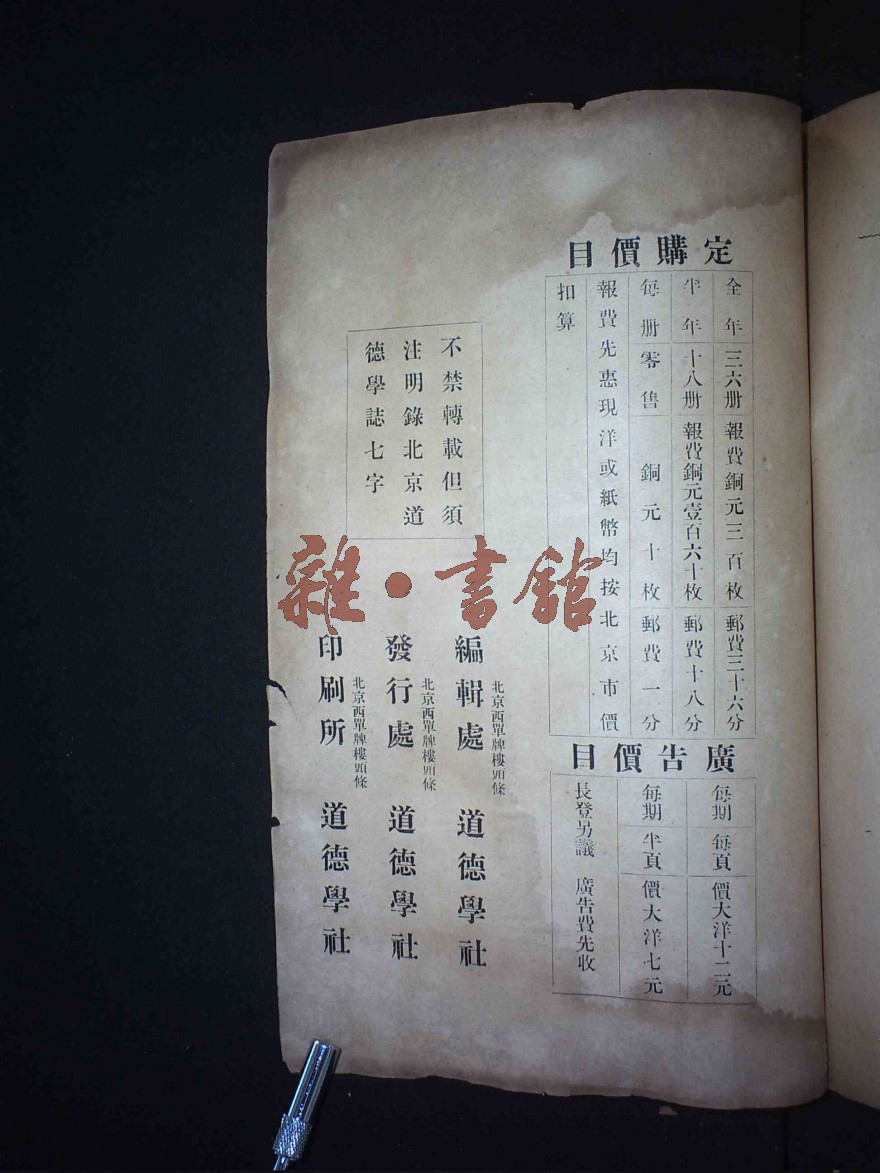 定購價目
全年 三六册 報費銅元三百枚 郵費三十六分
半年 十八册 報費銅元壹百六十枚 郵費十八分
每册零售 銅元十枚 郵費一分
報費先惠現洋或紙幣均按北京市價
扣算
廣告價目
每期 每頁 價大洋十二元
每期 半頁 價大洋七元
長登另議 廣告費先收
不禁轉載但須
注明錄北京道
德學誌七字
編輯處 北京西單牌樓頭條 道德學社
發行處 北京西單牌樓頭條 道德學社
印刷所 北京西單牌樓頭條 道德學社
雜·書館